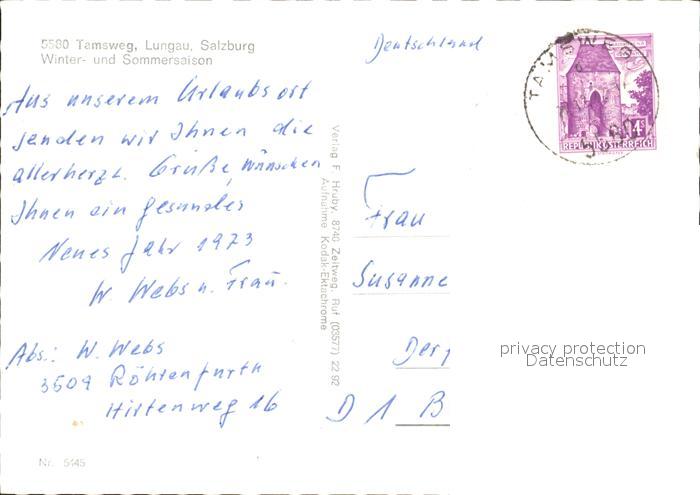 5580 Tamsweg, Lungau, Salzburg
Winter- und Sommersaison
Deutschland
Aus unserem Urlaubsort
senden wir Ihnen die
allerherzl. Grüße, wünschen
Ihnen ein gesundes
Neues Jahr 1973
W. Webs u. Frau.
Abs.: W. Webs
3509 Röhrenfurth
Hirtenweg 16
Nr. 5145
Verlag F. Hruby, 8740 Zeltweg, Ruf (03577) 22 92
Aufnahme Kodak-Ektachrome
TAMSWEG
5580
S 4
REPUBLIK ÖSTERREICH
Frau
Susanne
D 1 B
privacy protection
Datenschutz